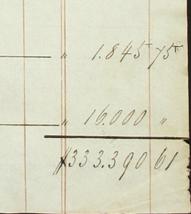 " 1.845 75
" 16.000 "
$333.390 61